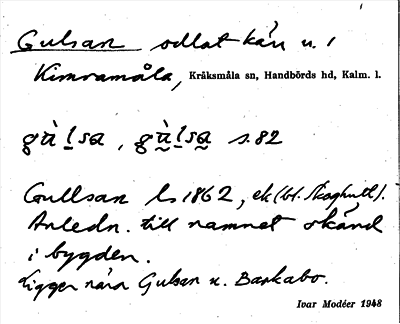 Gulsan odlat kärr u. 1
Kimramåla, Kråksmåla sn, Handbörds hd, Kalm. l.
gùlsa, gùlsa s. 82
Gullsan ls 1862, ek (bl. Skogsutl).
Anledn. till namnet okänd
i bygden.
Ligger nära Gulsan u. Barkabo.
Ivar Modéer 1948